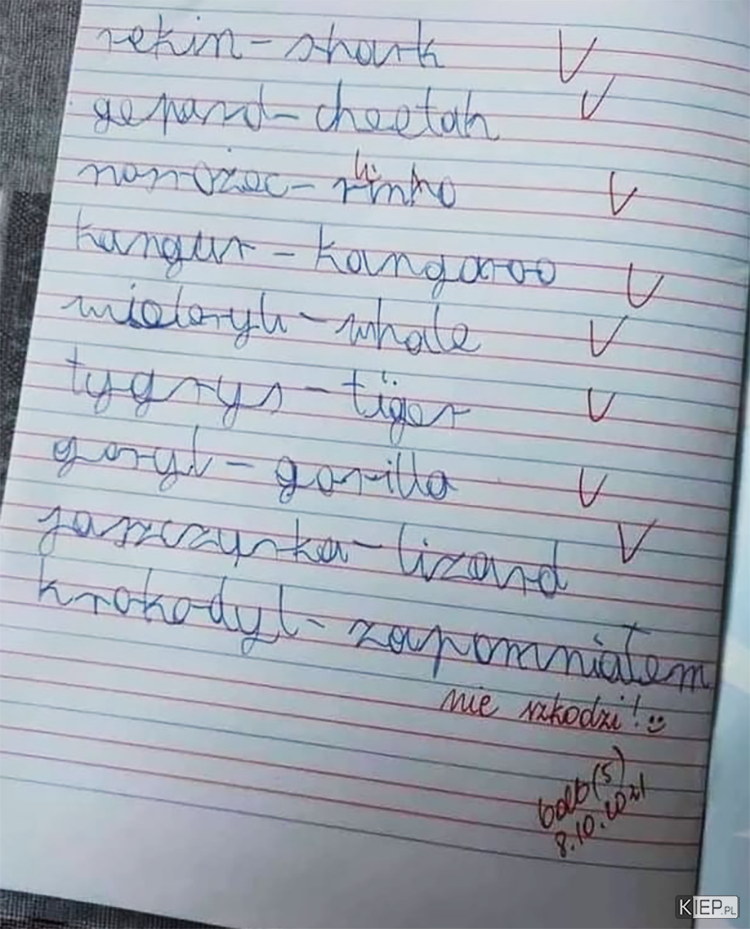 rekin - shark V
gepard - cheetah V
hi
nosrożec - rinho V
kangur - kangaroo V
wieloryb - whale V
tygrys - tiger V
goryl - gorilla V
jaszczurka - lizard V
krokodyl - zapomniałem
nie szkodzi! :)
bdb (5)
8.10.2021
KIEP.PL